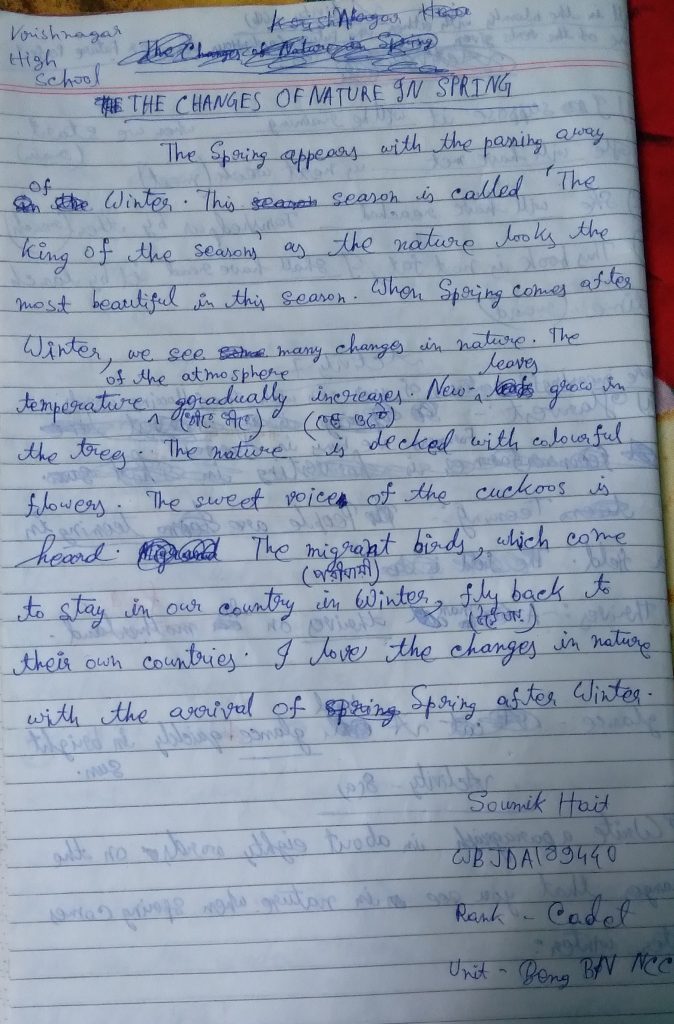 Krishnagar
High
School
THE CHANGES OF NATURE IN SPRING
The Spring appears with the passing away
of Winter. This season is called 'The
King of the seasons' as the nature looks the
most beautiful in this season. When Spring comes after
Winter, we see many changes in nature. The
of the atmosphere leaves
temperature gradually increases. New grow in
the trees. The nature is decked with colourful
flowers. The sweet voice of the cuckoos is
heard. The migrant birds, which come
(পরিযায়ী)
to stay in our country in Winter, fly back to
their own countries. I love the changes in nature
with the arrival of Spring after Winter.
Soumik Hait
WBJDA139440
Rank - Cadet
Unit - Beng BN NCC